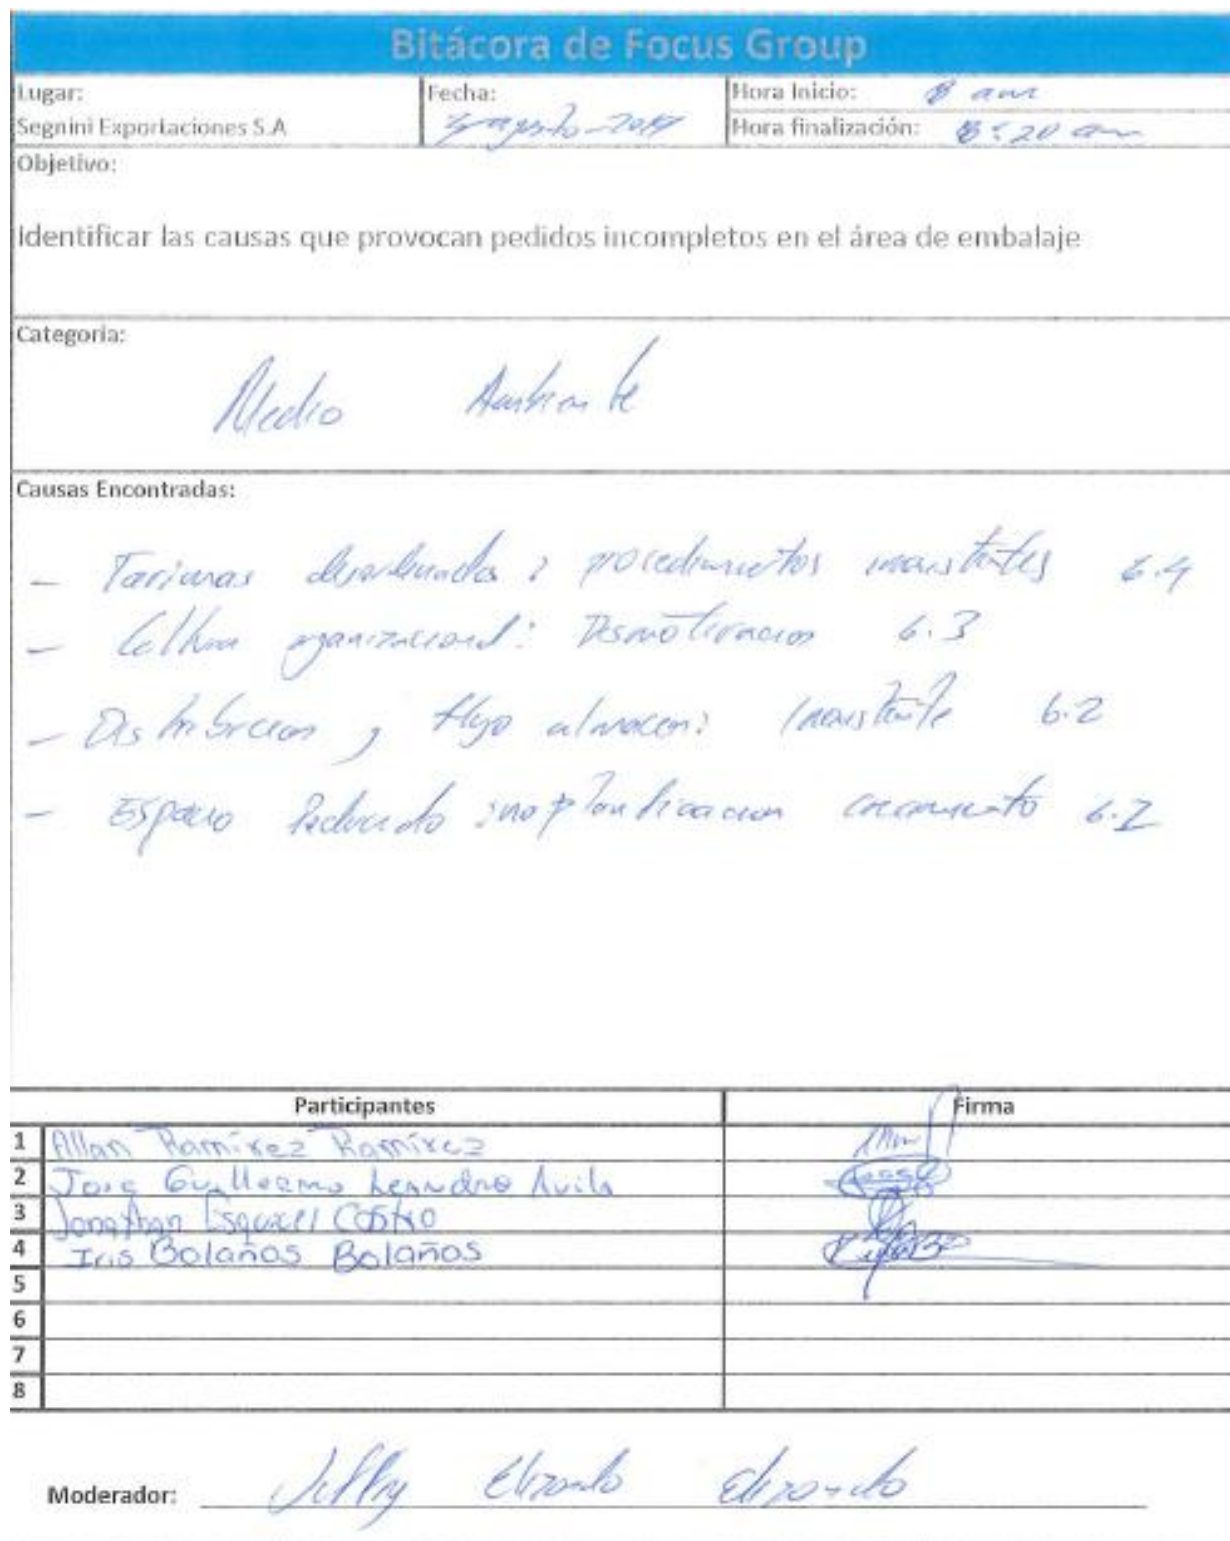 Bitácora de Focus Group
Lugar:
Segnini Exportaciones S.A
Fecha:
3 agosto-2017
Hora Inicio: 8 am
Hora finalización: 8:20 am
Objetivo:
Identificar las causas que provocan pedidos incompletos en el área de embalaje
Categoría:
Medio Ambiente
Causas Encontradas:
- Tarimas : procedimientos inexistentes 6.4
- Cultura organizacional: Desmotivacion 6.3
- Distribucion y flujo almacen: Inexistente 6.2
- Espacio Reducido : no planificacion crecimiento
Participantes Firma
1 Allan Ramírez Ramírez
2 Jose Guillermo Leandro Avila
3 Jonathan Esquivel Castro
4 Iris Bolaños Bolaños
5
6
7
8
Moderador: Jeffry Elizondo Elizondo